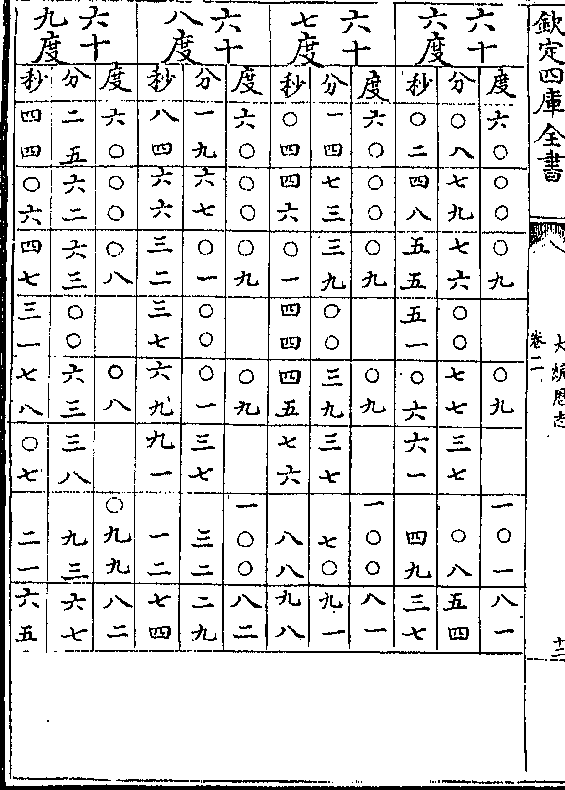 欽定四庫全書
大統歴志
卷二
十二
六十六度
度六〇〇〇〇九〇九一〇一八一
分〇八七九七六〇〇七七三七〇八五四
秒〇二四八五五五一〇六六一四九三七
六十七度
度六〇〇〇〇九〇九一〇〇八一
分一四七三三九〇〇三九三七七〇九一
秒〇四四六〇一四四四五七六八八九八
六十八度
度六〇〇〇〇九〇九一〇〇八二
分一九六七〇一〇〇〇一三七三二二九
秒八四六六三二三七六九九一一二七四
六十九度
度六〇〇〇〇八〇八〇九九八二
分二五六二六三〇〇六三三八九三六七
秒四四〇六四七三一七八〇七二一六五